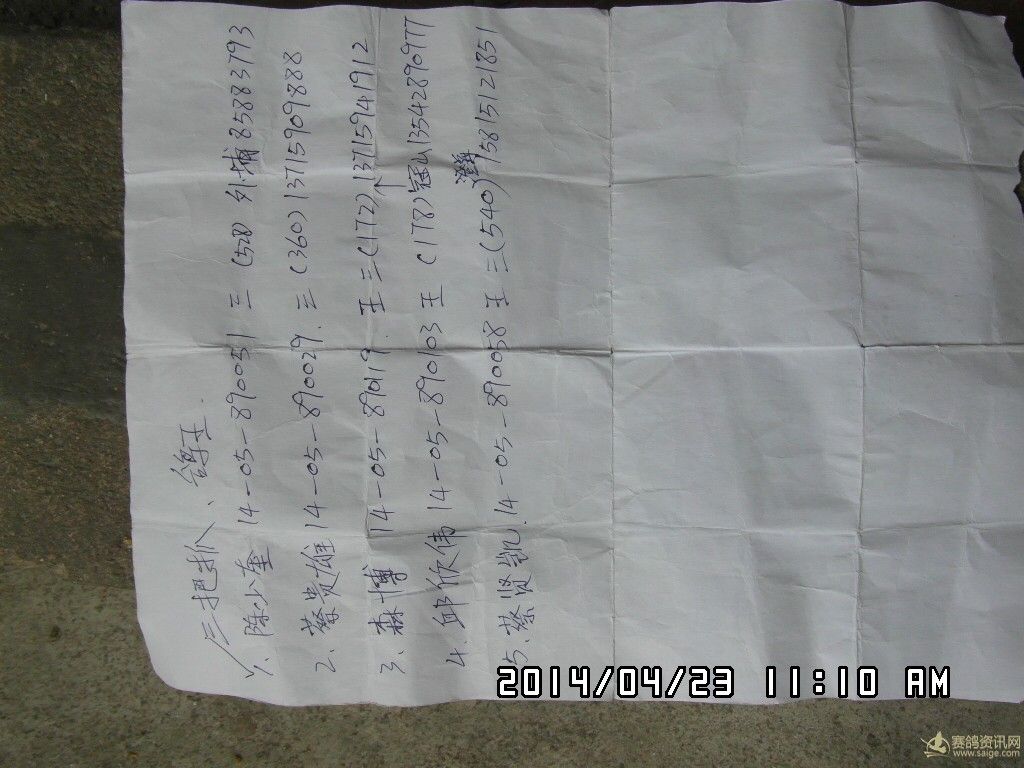 三把抓、鸽王.
1. 陈少奎 14-05-890051 三 (528) 外埔 85883793
2. 蔡贵雄 14-05-890029. 三 (360) 13715909888
3. 森博 14-05-890119. 王 三 (172) 13715941912
4. 邱欣伟 14-05-890103 王 (178) 冠山 13542890977
5. 蔡贤凯. 14-05-890058 王 三 (540) 15815121851
2014/04/23 11:10 AM
赛鸽资讯网
www.saige.com